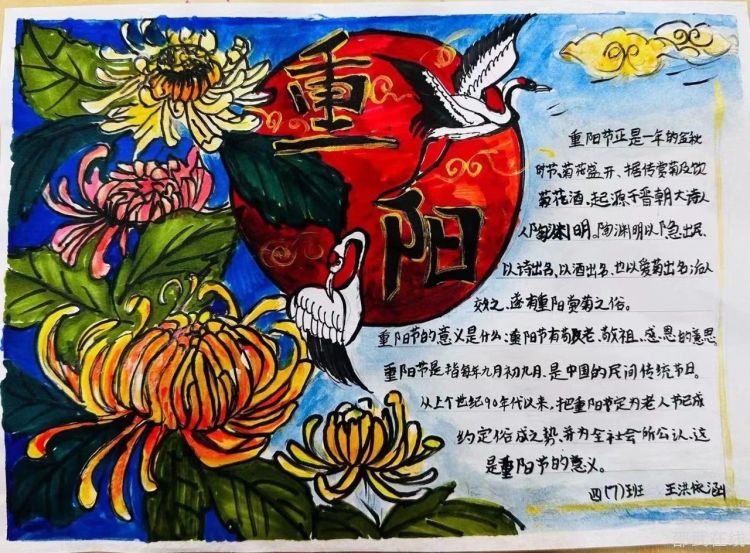 重
阳
重阳节正是一年的金秋
时节、菊花盛开、据传赏菊及饮
菊花酒、起源于晋朝大诗人
人陶渊明。陶渊明以隐出名、
以诗出名、以酒出名、也以爱菊出名后人
效之、遂有重阳赏菊之俗。
重阳节的意义是什么:重阳节有敬老、敬祖、感恩的意思
重阳节是指每年九月初九月、是中国的民间传统节日。
从上个世纪90年代以来、把重阳节定为老人节已成
约定俗成之势、并为全社会所公认、这
是重阳节的意义。
四(7)班 王洪依涵